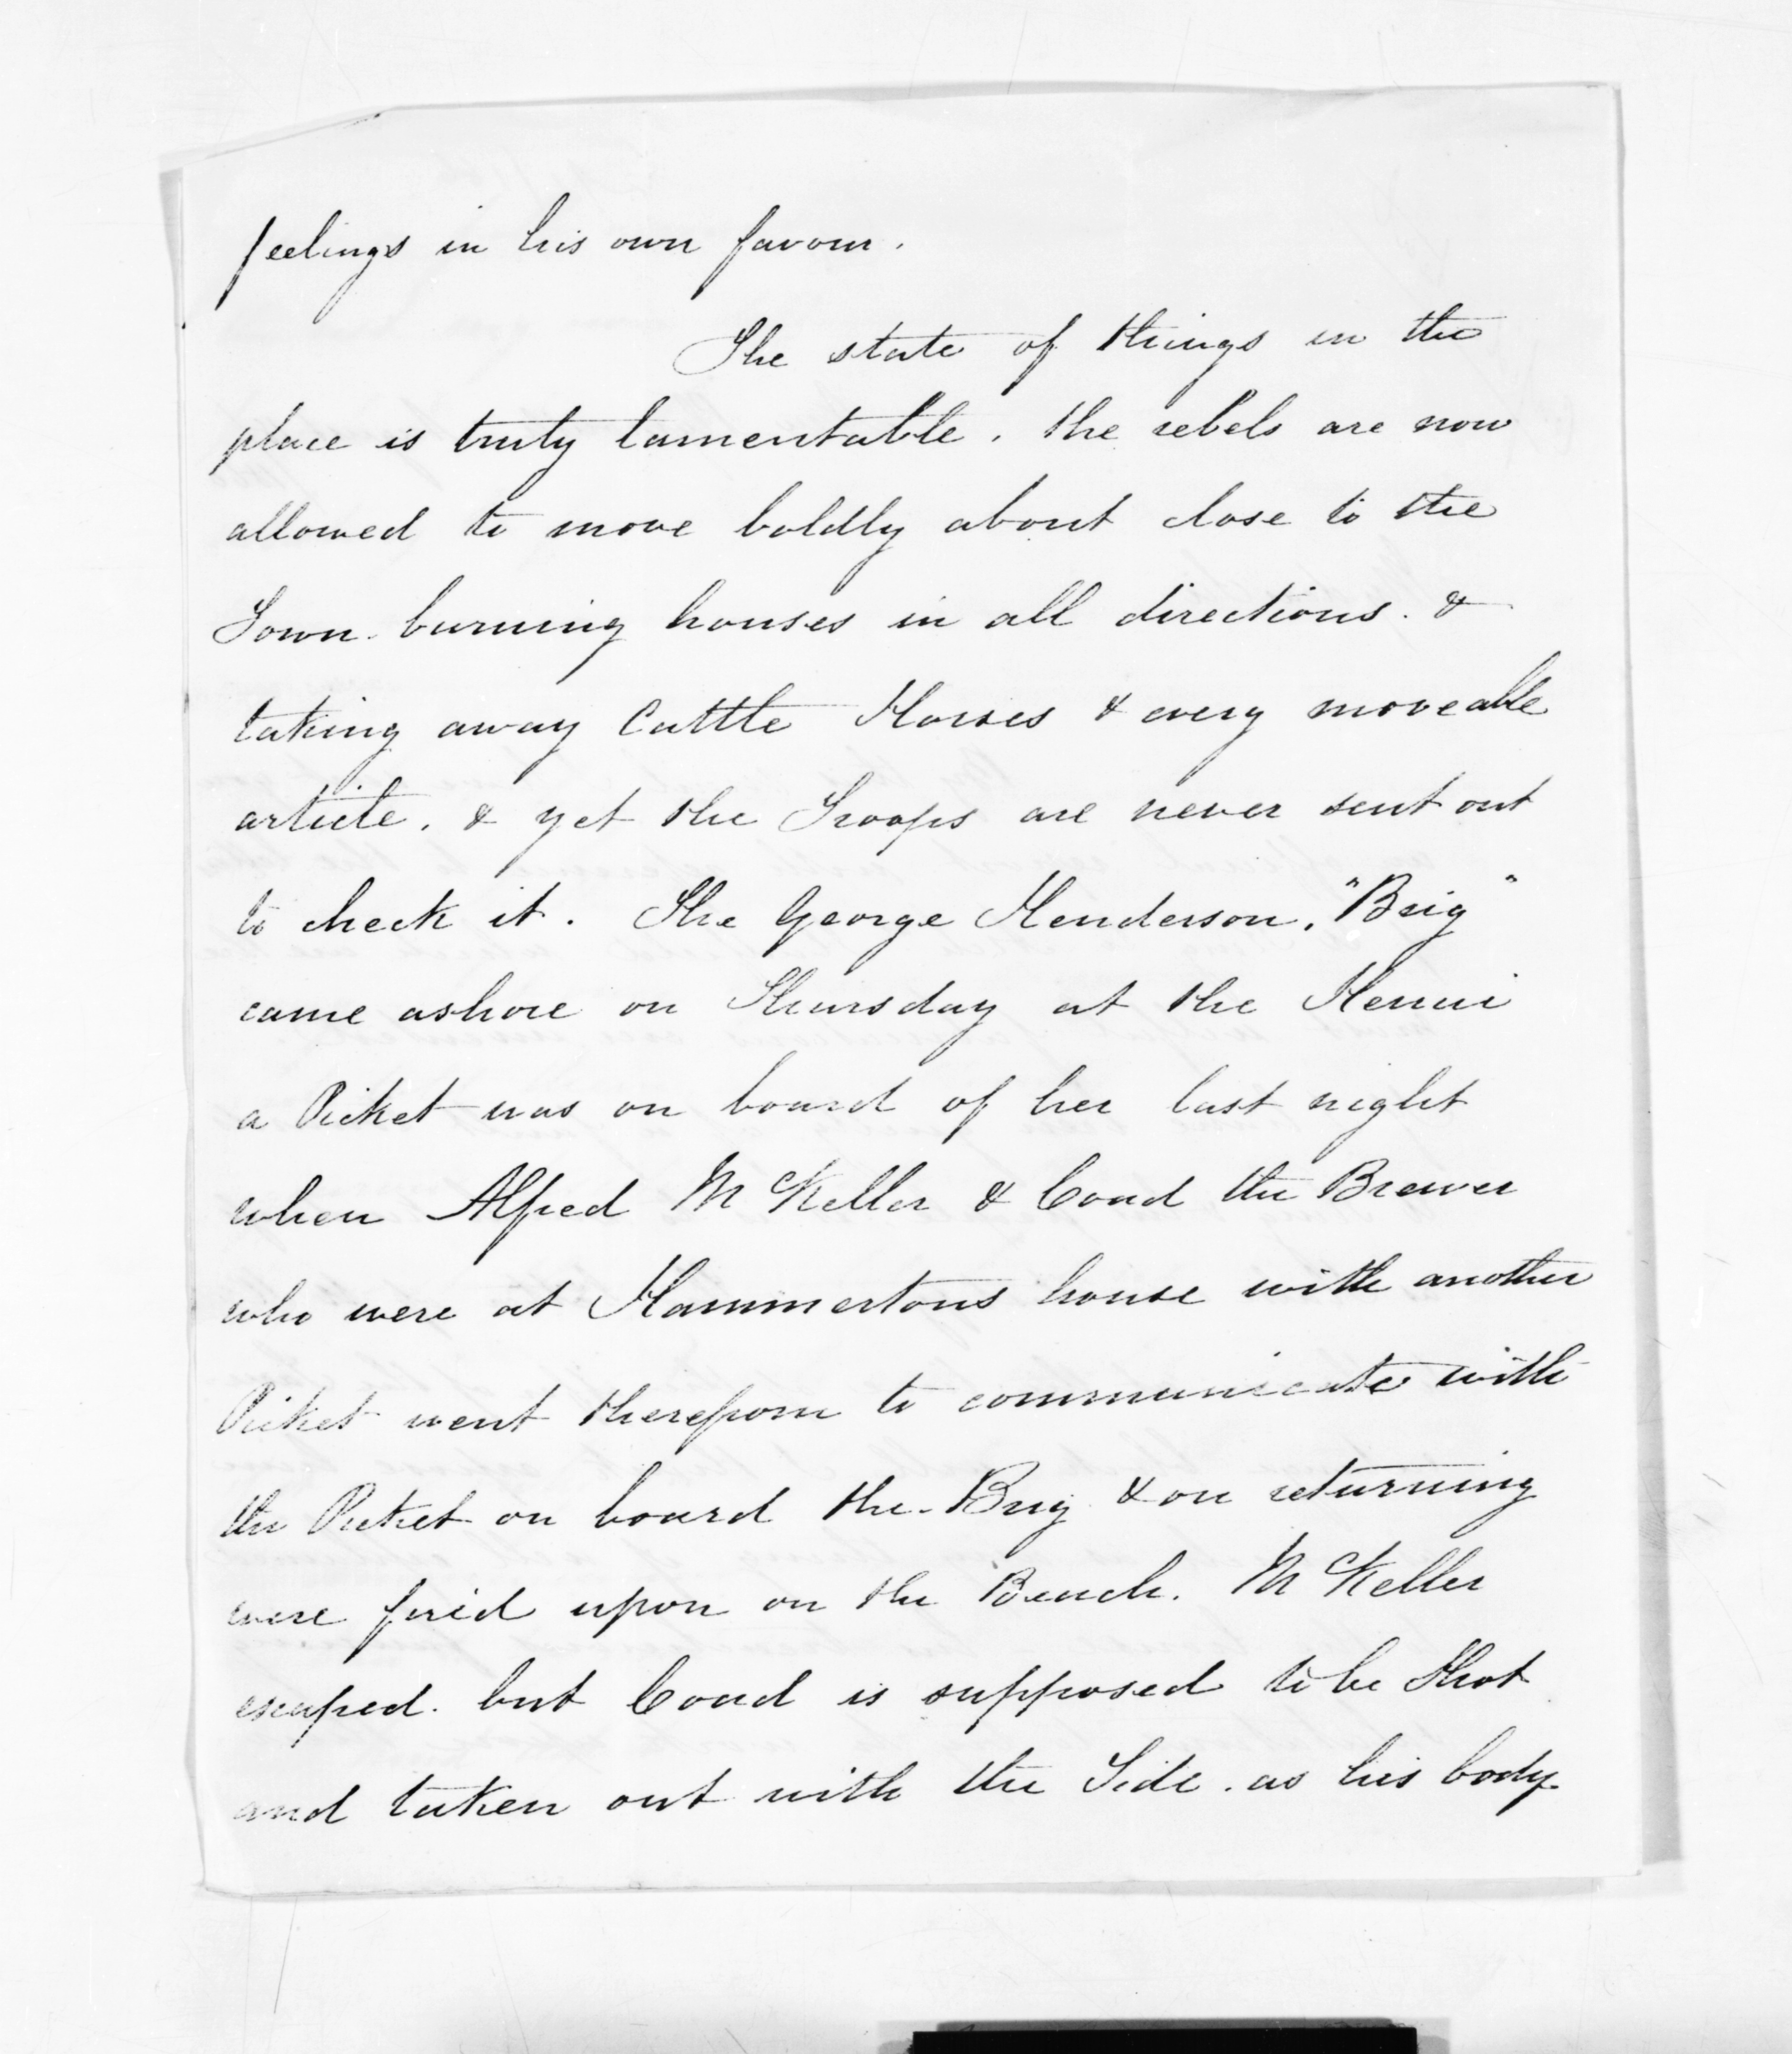 feelings in his own favour.
The state of things in the
place is truly lamentable. the rebels are now
allowed to move boldly about close to the
Town. burning houses in all directions. &
taking away Cattle Horses & every moveable
article. & yet the Troops are never sent out
to check it. The George Henderson, "Brig"
came ashore on Thursday at the Henui
a Picket was on board of her last night
when Alfred McKeller & Coad the Brewer
who were at Hammertons house with another
Picket went therefrom to communicate with
the Picket on board the Brig & on returning
were fired upon on the Beach. McKeller
escaped. but Coad is supposed to be Shot
and taken out with the Tide. as his body